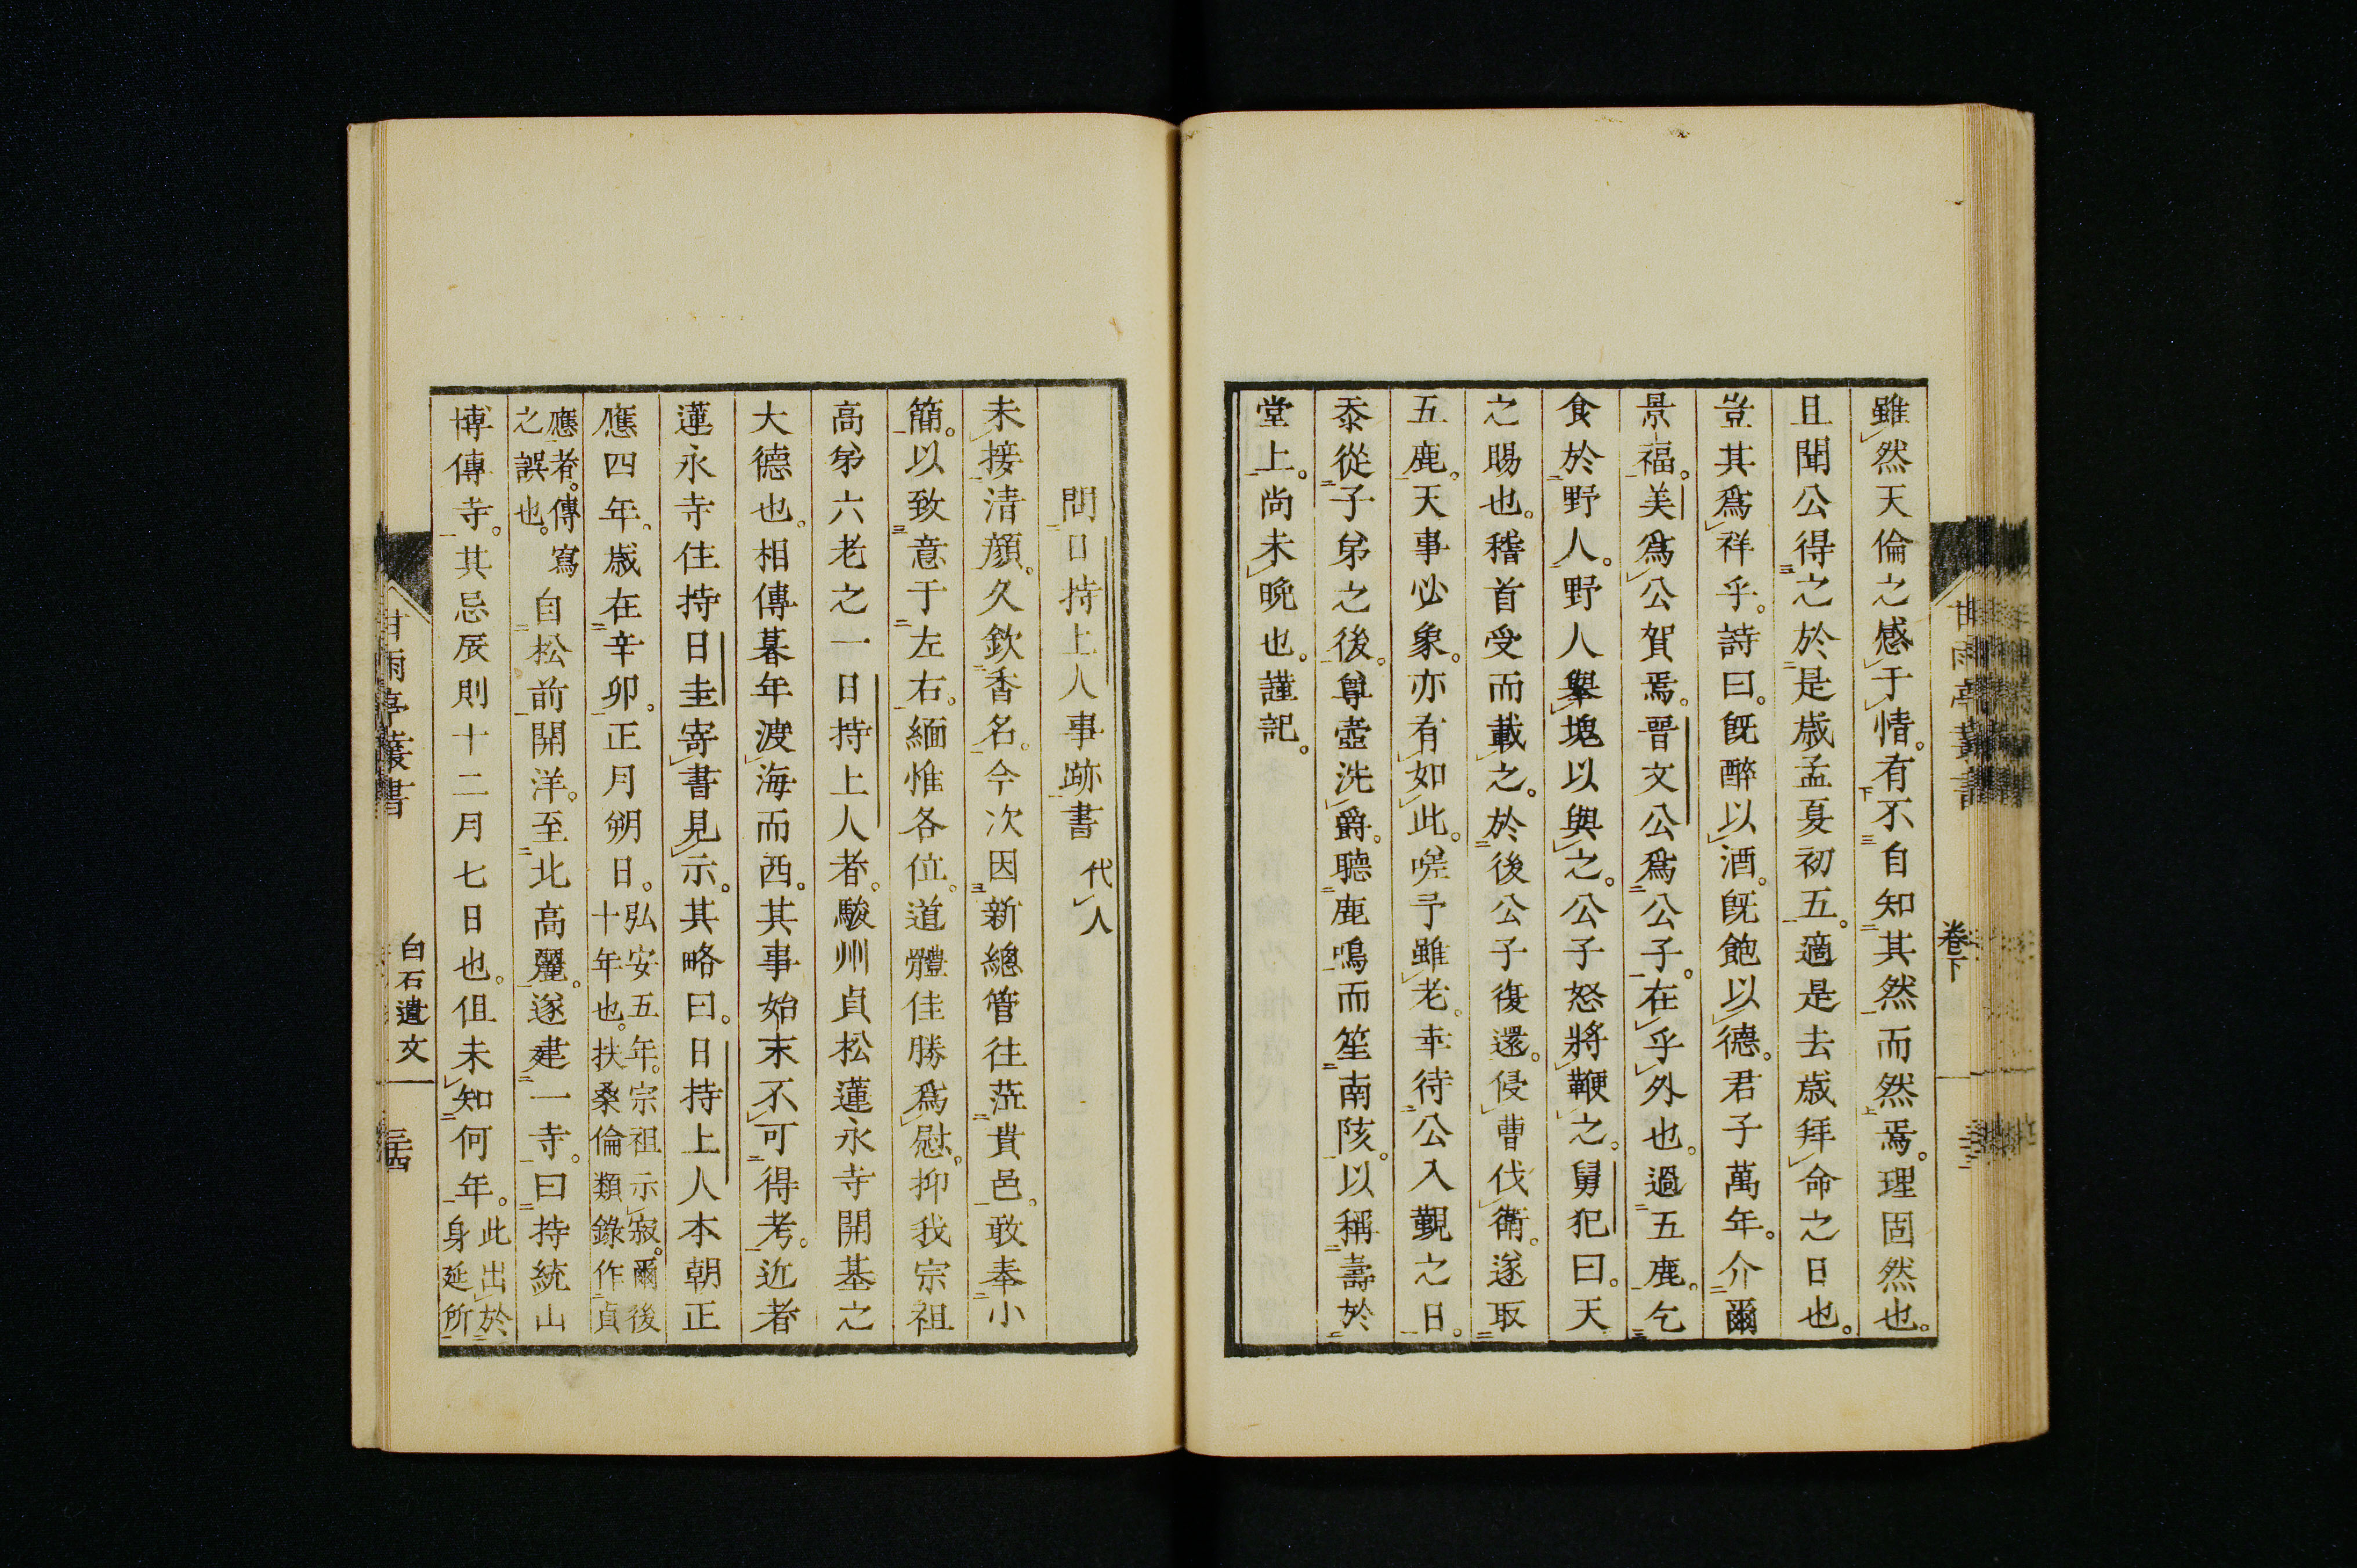 雖然天倫之感于情。有不自知其然而然焉。理固然也。
且聞公得之於是歲孟夏初五。適是去歲拜命之日也。
豈其爲祥乎。詩曰。旣醉以酒。旣飽以德。君子萬年。介爾
景福。美爲公賀焉。晉文公爲公子。在乎外也。過五鹿。乞
食於野人。野人擧塊以與之。公子怒將鞭之。舅犯曰。天
之賜也。稽首受而載之。於後公子復還。侵曹伐衛。遂取
五鹿。天事必象。亦有如此。嗟予雖老。幸待公入覲之日。
忝從子弟之後。尊壺洗爵。聽鹿鳴而笙南陔。以稱壽於
堂上。尚未晩也。謹記。
卷下
問日持上人事跡書 代人
未接清顏。久欽香名。今次因新總管往莅貴邑。敢奉小
簡。以致意于左右。緬惟各位。道體佳勝爲慰。抑我宗祖
高弟六老之一日持上人者。駿州貞松蓮永寺開基之
大德也。相傳暮年渡海而西。其事始末不可得考。近者
蓮永寺住持日圭寄書見示。其略曰。日持上人本朝正
應四年。歲在辛卯。正月朔日。弘安五年。宗祖示寂。爾後十年也。扶桑倫類錄作貞
應者。傳寫之誤也。自松前開洋。至北高麗。遂建一寺。曰持統山
博傳寺。其忌辰則十二月七日也。但未知何年。此出於身延所
甘雨亭叢書
白石遺文